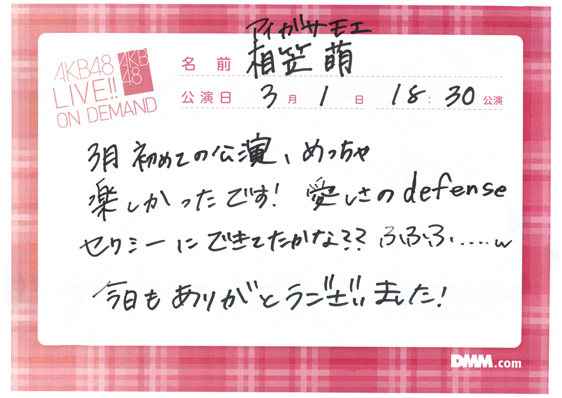 アイガサモエ
AKB48
LIVE!!
ON DEMAND
AKB
48
名前 相笠 萌
公演日 3月1日 18:30公演
3月初めての公演、めっちゃ
楽しかったです! 愛しさのdefense
セクシーにできてたかな?? ふふふ.....w
今日もありがとうございました!
DMM.com